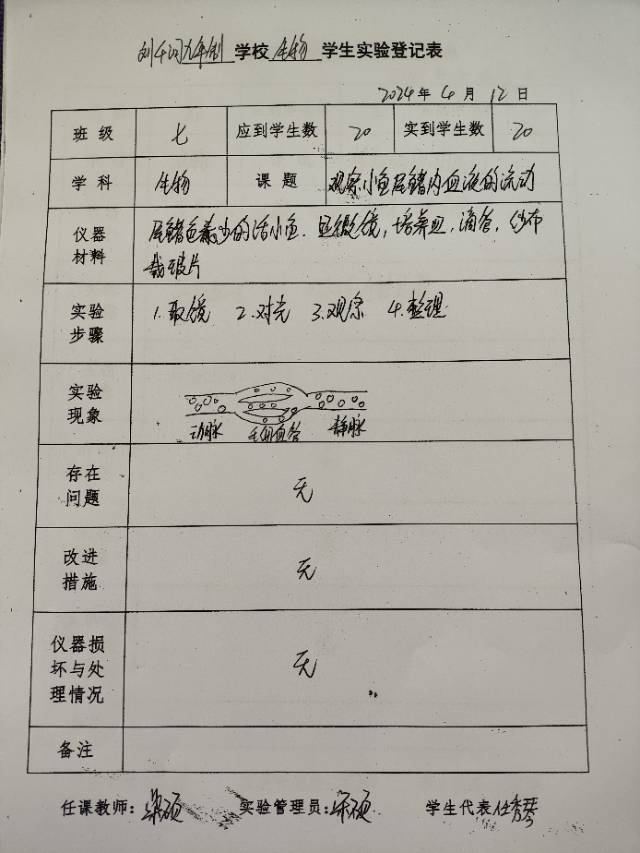 刘千河九年制 学校 生物 学生实验登记表
2024年 4 月 12 日
班级 七 应到学生数 20 实到学生数 20
学科 生物 课题 观察小鱼尾鳍内血液的流动
仪器材料 尾鳍色素少的活小鱼.显微镜,培养皿,滴管,纱布
载玻片
实验步骤 1.取镜 2.对光 3.观察 4.整理
实验现象
动脉 毛细血管 静脉
存在问题 无
改进措施 无
仪器损坏与处理情况 无
备注
任课教师: 实验管理员: 学生代表